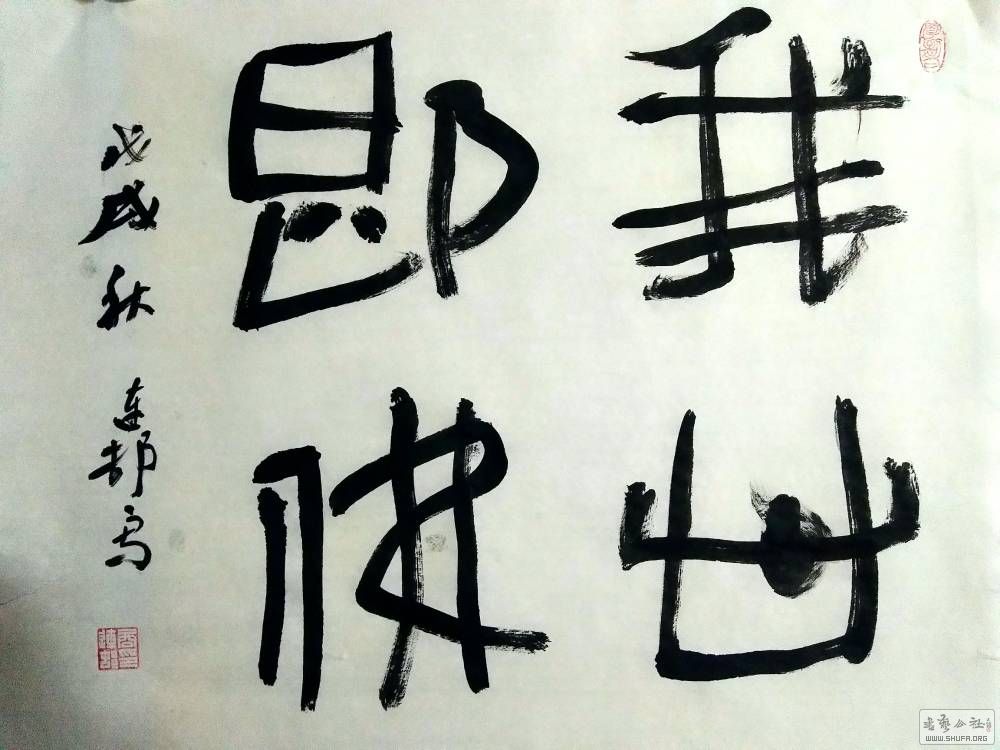 我心
即佛
戊戌秋连都写
书艺公社
WWW.SHUFA.ORG